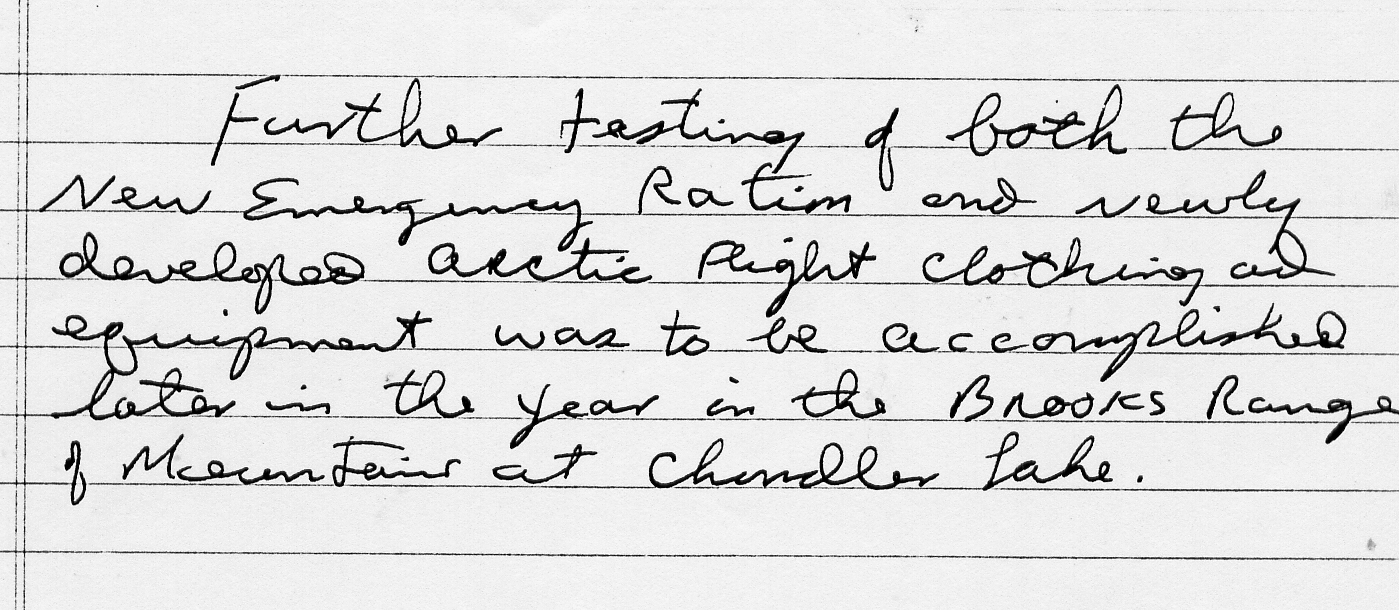 Further testing of both the
New Emergency Ration and newly
developed Arctic Flight Clothing and
equipment was to be accomplished
later in the year in the Brooks Range
of Mountains at Chandler Lake.